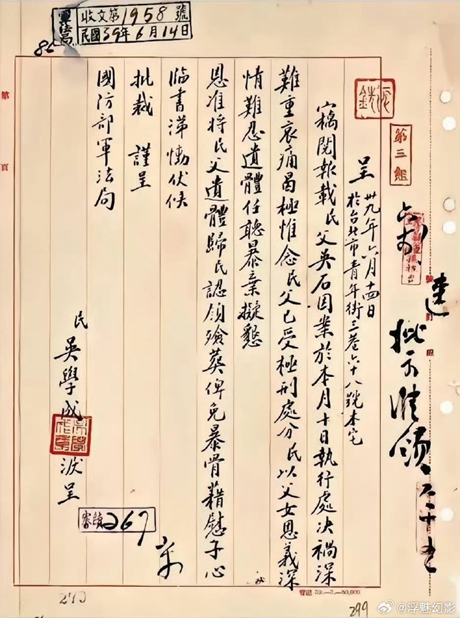 收文第1958號
民國39年6月14日
第三組
批示准領
呈
卅九年六月十四日
於台北市青年街三巷六十八號本宅
竊閱報載民父吳石因業於本月十日執行處決禍深
難重哀痛曷極惟念民父已受極刑處分民以父女恩義深
情難忍遺體任聽暴棄擬懇
恩准將民父遺體歸民認領殮葬俾免暴骨藉慰子心
臨書涕慟伏俟
批裁 謹呈
國防部軍法局
民 吳學成 淚呈
267
第 頁
273
299
@浮魅幻影